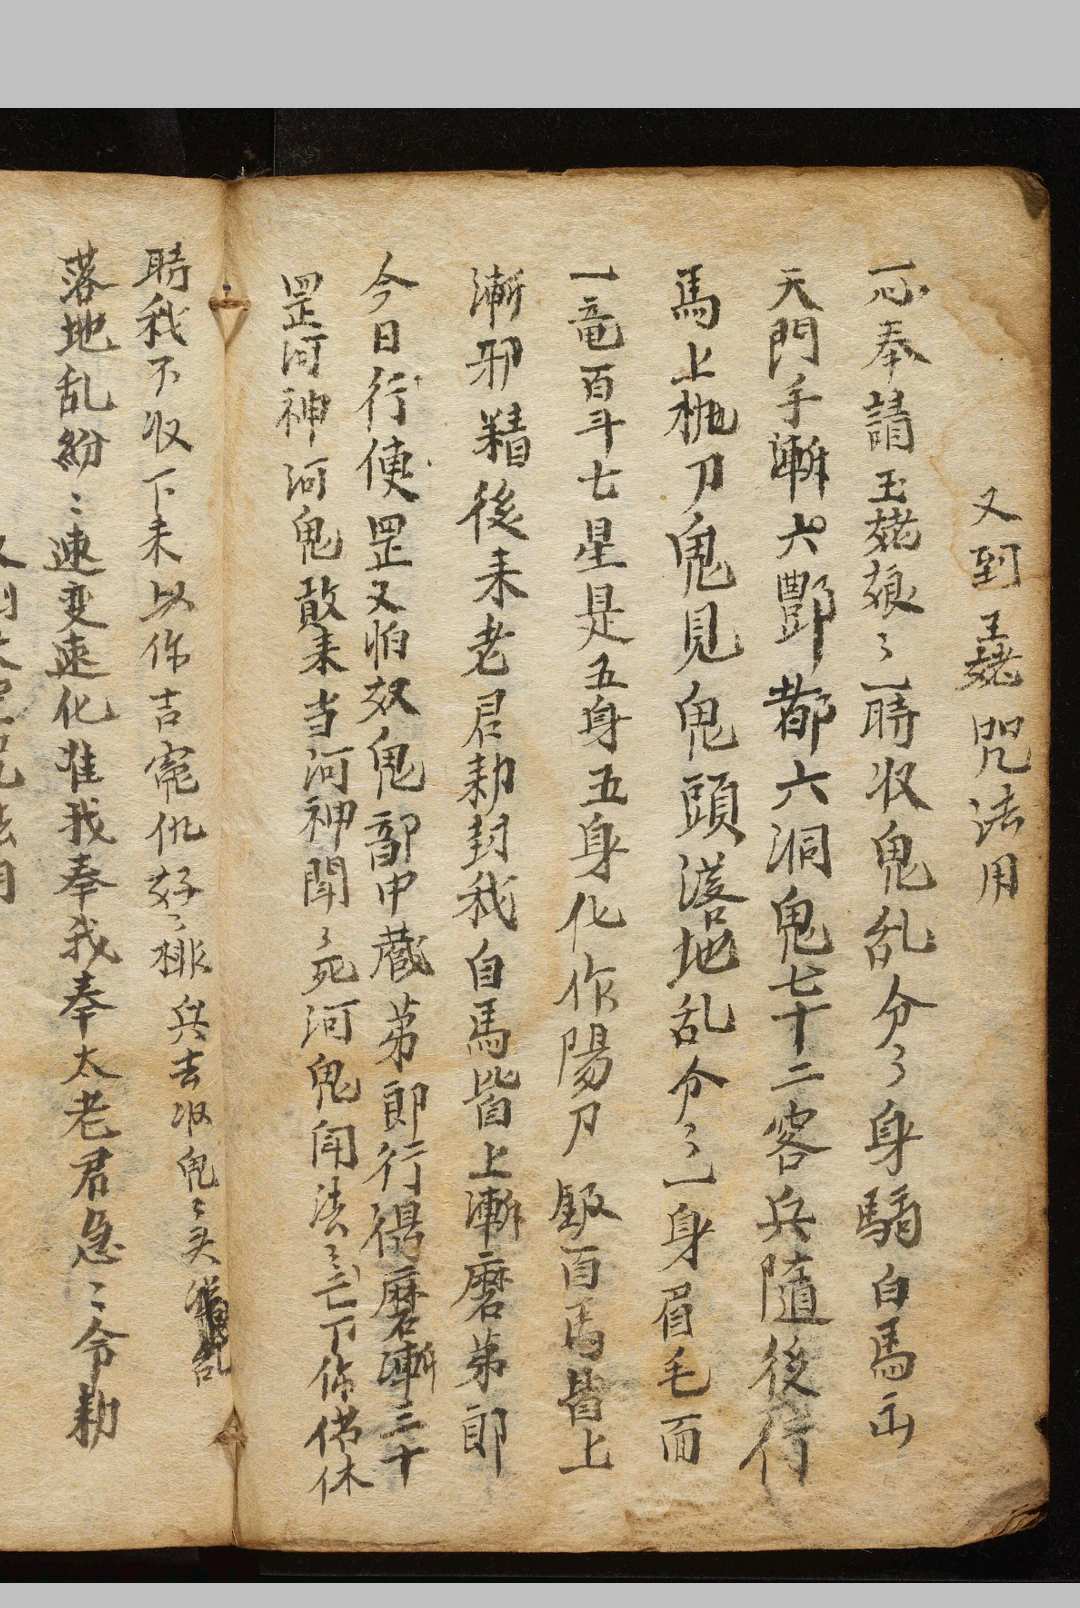 又到玉姥咒法用
一心奉請玉姥娘〻一時收鬼乱分〻身騎白馬出
天門手漸六酆都六洞鬼七十二客兵隨後行
馬上桃刀鬼見鬼頭落地乱分〻一身眉毛面
一竜百斗七星是五身五身化作陽刀 百馬皆上
漸邪精後耒老君勅封我自馬皆上漸磨弟郎
今日行使罡又怕奴鬼部中藏弟郎行得磨漸三十
罡河神河鬼敢耒当河神聞〻死河鬼闻法〻亡下你伓休
時我不收下未以你吉冤仇好〻排兵去收鬼〻头
落地乱紛〻速变速化准我奉我奉太老君急〻令勅